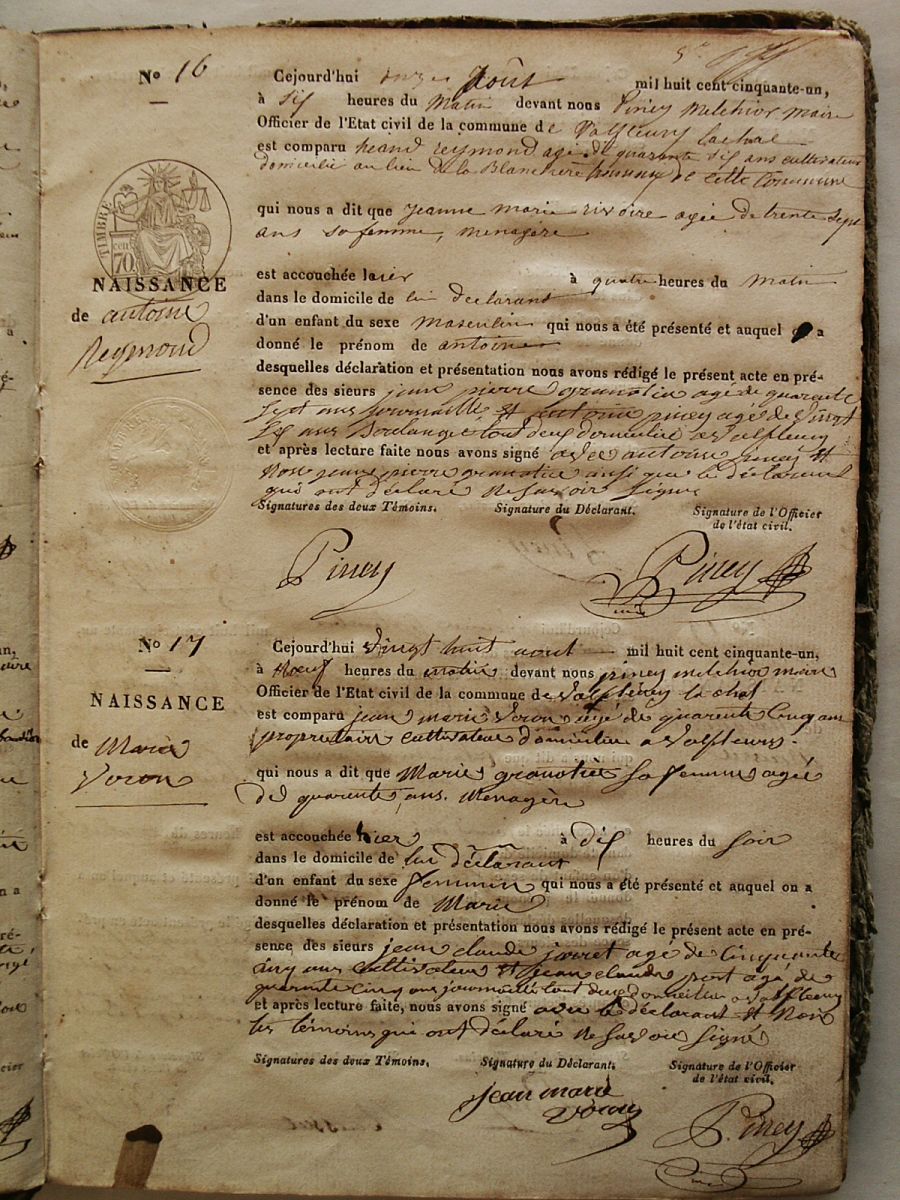 No 16
Cejourd'hui onze Août mil huit cent cinquante-un,
à six heures du matin devant nous Piney melchior maire
Officier de l'Etat civil de la commune de Valfleury Lachal
est comparu Reymond agé de quarante six ans cultivateur
domicilié au lieu de la Blanchere de cette Commune
TIMBRE
cen 70.
qui nous a dit que jeanne marie rivoire agée de trente sept
ans sa femme, menagere
NAISSANCE
de antoine
Reymond
est accouchée hier à quatre heures du matin
dans le domicile de lui déclarant
d'un enfant du sexe masculin qui nous a été présenté et auquel a
donné le prénom de antoine
desquelles déclaration et présentation nous avons rédigé le présent acte en pré-
sence des sieurs jean pierre granotier agé de quarante
sept ans et antoine piney agé de vingt
six ans Boulangé tout deux domicilié a valfleury
et après lecture faite nous avons signé avec antoine piney et
Non jean pierre granotier ainsi que le déclarant
qui ont déclaré ne savoir signé
Signatures des deux Témoins. Signature du Déclarant. Signature de l'Officier
de l'état civil.
Piney Piney
No 17
Cejourd'hui vingt huit aout mil huit cent cinquante-un,
à Noeuf heures du matin devant nous piney melchior maire
Officier de l'Etat civil de la commune de valfleury la chal
est comparu jean marie Voron agé de quarente cinq ans
proprietaire cultivateur domicilié a valfleury.
NAISSANCE
de Marie
Voron
qui nous a dit que Marie granotier sa femme agée
de quarente ans. Menagère
est accouchée hier à dix heures du soir
dans le domicile de lui déclarant
d'un enfant du sexe femmin qui nous a été présenté et auquel on a
donné le prénom de Marie
desquelles déclaration et présentation nous avons rédigé le présent acte en pré-
sence des sieurs jean claude jorret agé de cinquante
cinq ans cultivateur et jean claude agé de
quarente cinq ans journaillé tout deux domicilier a valfleury
et après lecture faite, nous avons signé avec le déclarant et Non
les témoins qui ont déclaré ne savoir signé
Signatures des deux Témoins. Signature du Déclarant. Signature de l'Officier
de l'état civil.
jean marie
voron
Piney